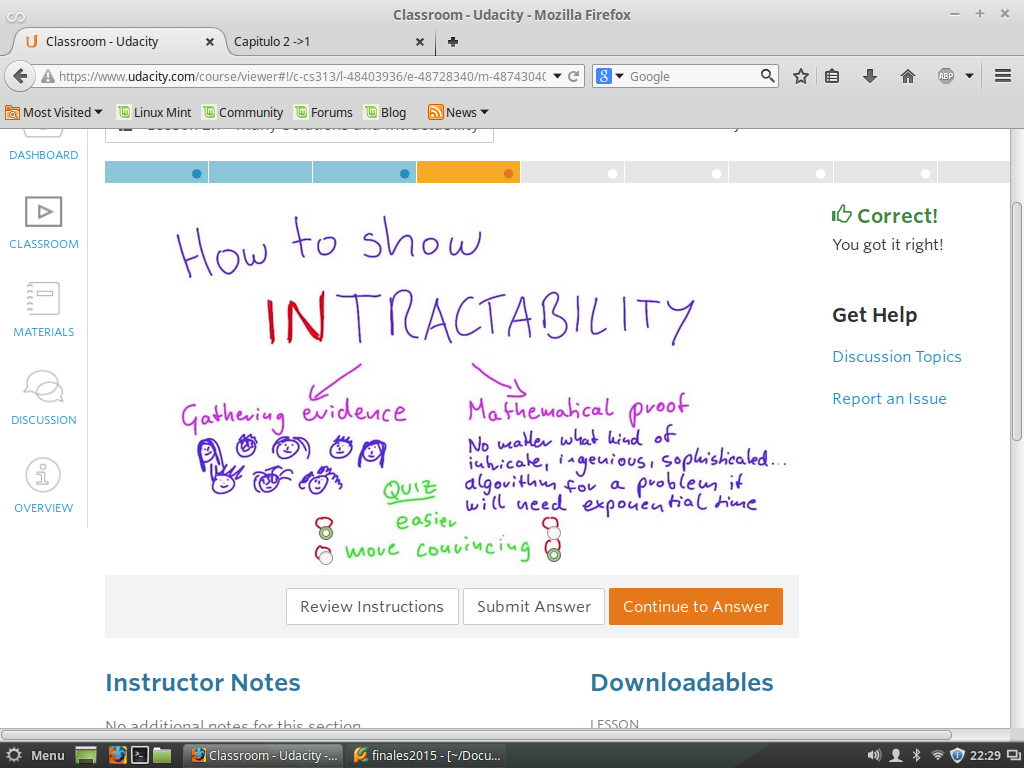 Classroom - Udacity - Mozilla Firefox
Classroom - Udacity
Capitulo 2 ->1
https://www.udacity.com/course/viewer#!/c-cs313/l-48403936/e-48728340/m-48743040
Google
ABP
Most Visited
Linux Mint
Community
Forums
Blog
News
DASHBOARD
CLASSROOM
MATERIALS
DISCUSSION
OVERVIEW
How to show
INTRACTABILITY
Gathering evidence
Mathematical proof
No matter what kind of
intricate, ingenious, sophisticated...
algorithm for a problem it
will need exponential time
QUIZ
easier
more convincing
Correct!
You got it right!
Get Help
Discussion Topics
Report an Issue
Review Instructions
Submit Answer
Continue to Answer
Instructor Notes
No additional notes for this section
Downloadables
LESSON
Menu
Classroom - Udacity -...
finales2015 - [~/Docu...
22:29